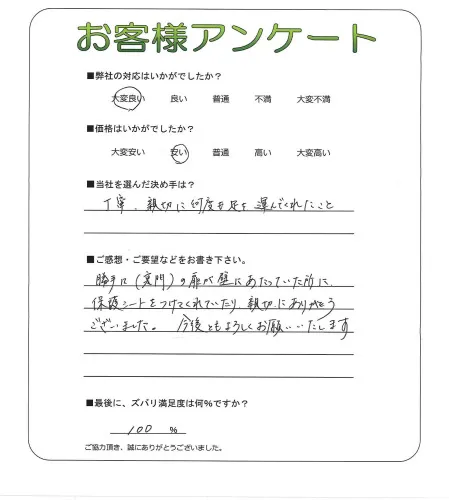 お客様アンケート
■弊社の対応はいかがでしたか？
大変良い 良い 普通 不満 大変不満
■価格はいかがでしたか？
大変安い 安い 普通 高い 大変高い
■当社を選んだ決め手は？
丁寧、親切に何度も足を運んでくれたこと
■ご感想・ご要望などをお書き下さい。
勝手口(裏門)の扉が壁にあたっていた所に、
保護シートをつけてくれていたり、親切にありがとう
ございました。 今後ともよろしくお願いいたします
■最後に、ズバリ満足度は何％ですか？
100 %
ご協力頂き、誠にありがとうございました。